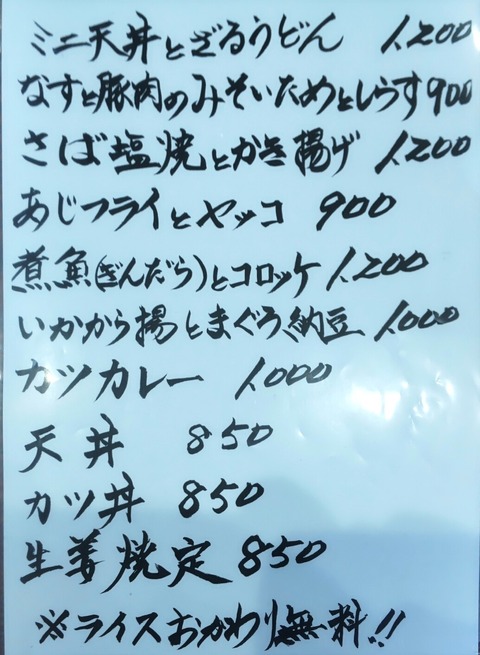 ミニ天丼とざるうどん 1,200
なすと豚肉のみそいためとしらす 900
さば塩焼とかき揚げ 1,200
あじフライとヤッコ 900
煮魚(ぎんだら)とコロッケ 1,200
いかから揚とまぐろ納豆 1,000
カツカレー 1,000
天丼 850
カツ丼 850
生姜焼定 850
※ライスおかわり無料!!